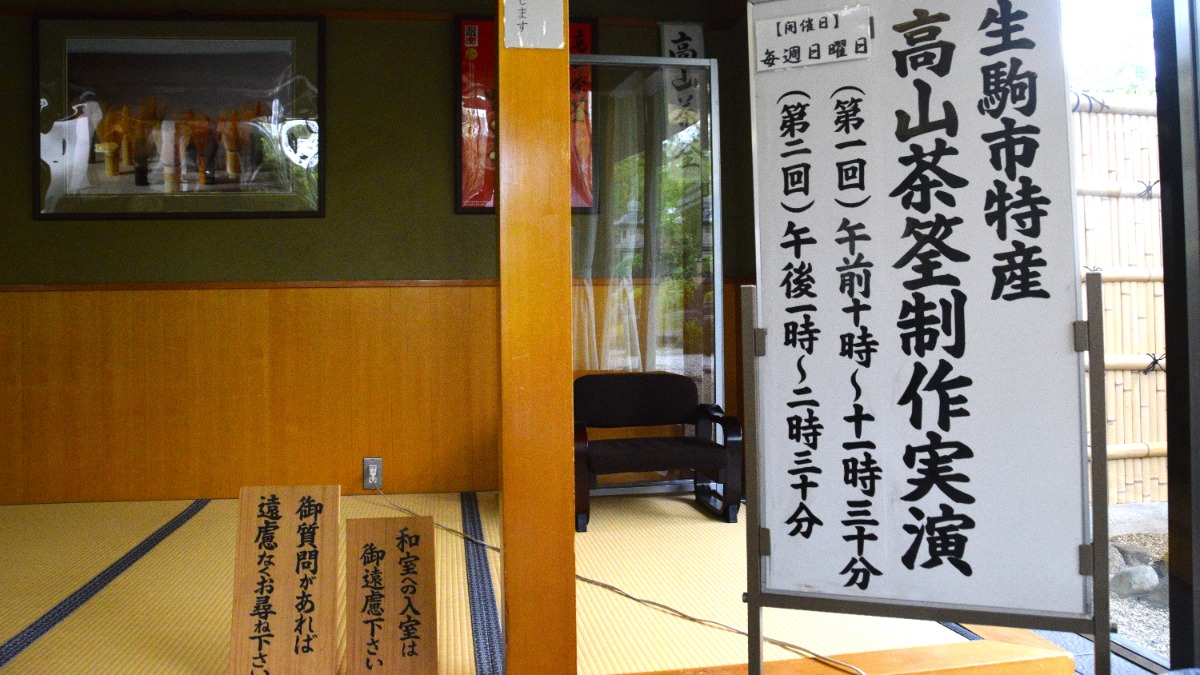 生駒市特産
高山茶筌制作実演
【開催日】
毎週日曜日
(第一回)午前十時〜十一時三十分
(第二回)午後一時〜二時三十分
高山茶
します
御質問があれば
遠慮なくお尋ね下さい
和室への入室は
御遠慮下さい